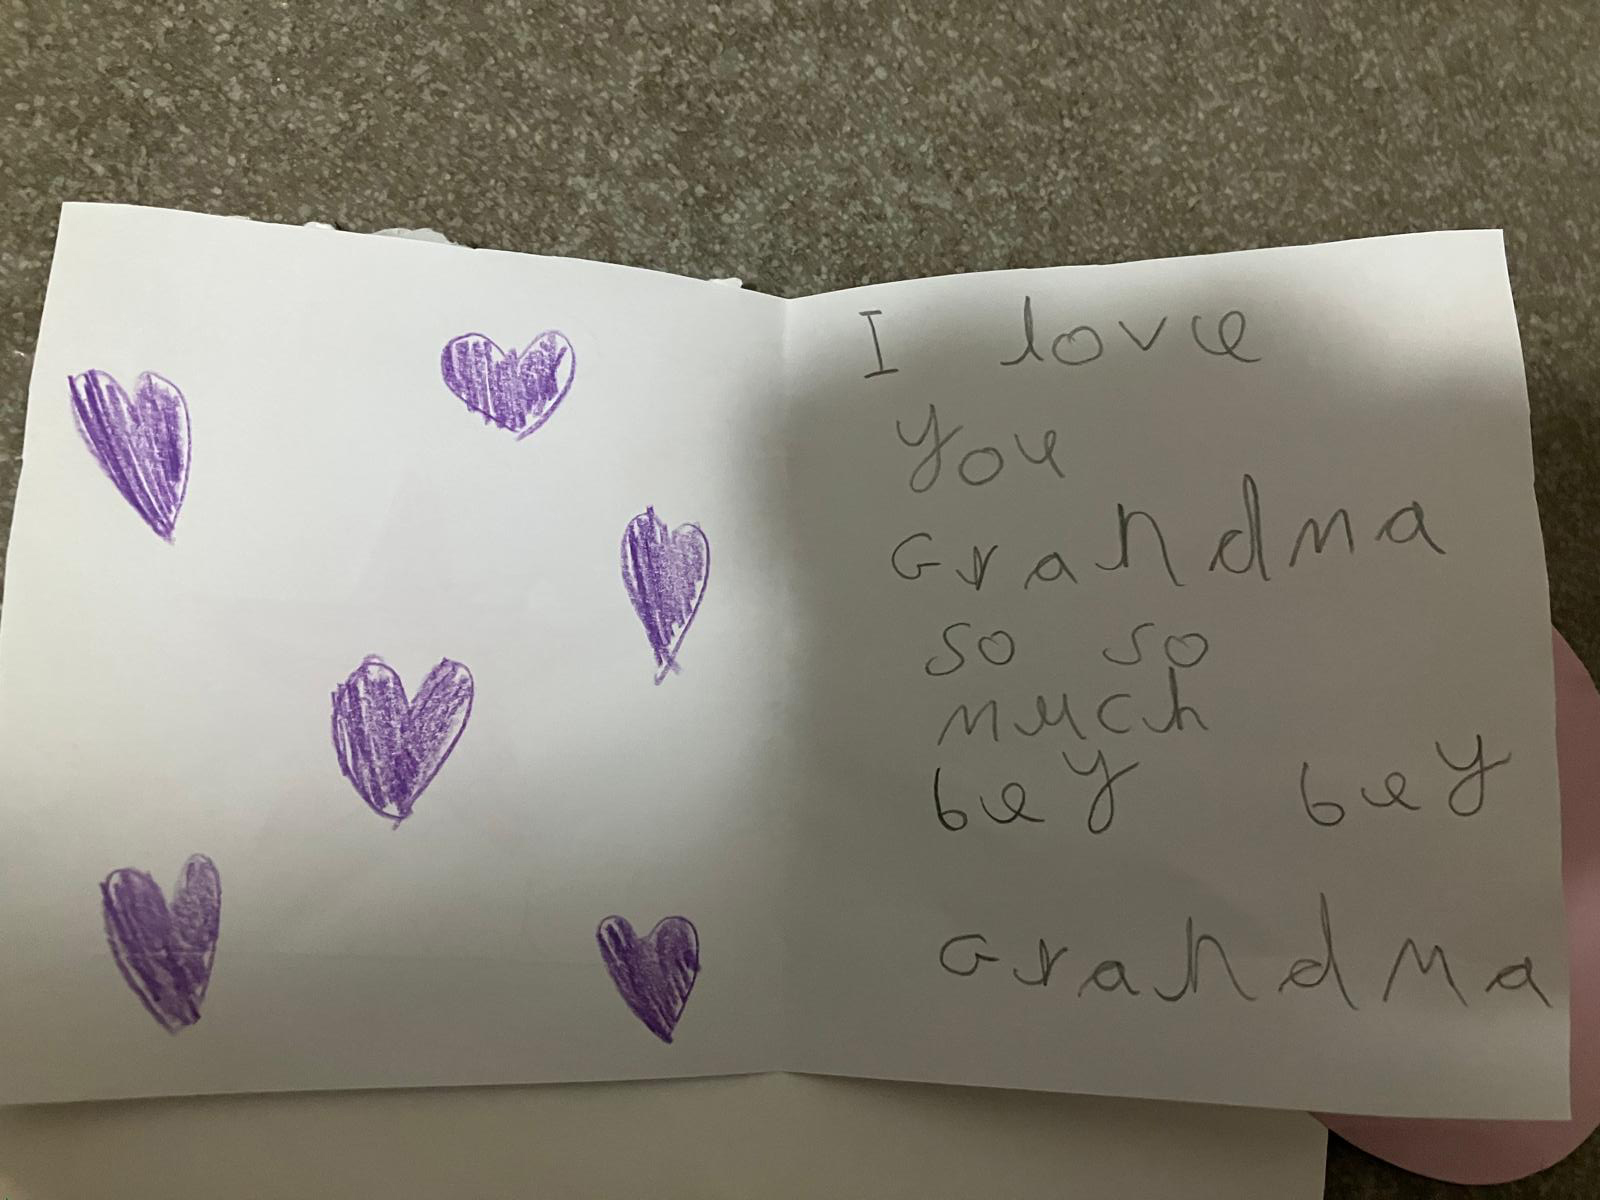 I love
you
Grandma
so so
much
bey bey
Grandma